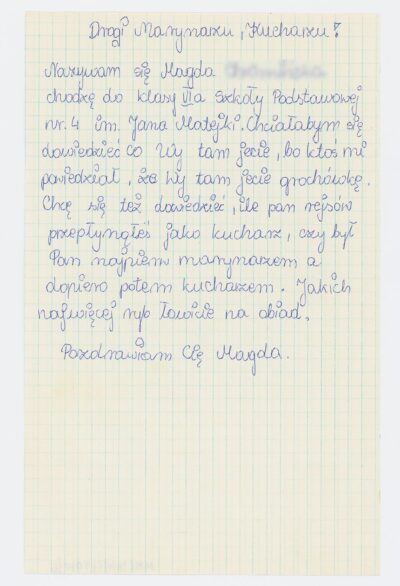 Drogi Marynarzu, Kucharzu!
Nazywam się Magda
chodzę do klasy VIa szkoły Podstawowej
nr. 4 im. Jana Matejki. Chciałabym się
dowiedzieć co Wy tam jecie, bo ktoś mi
powiedział, że Wy tam jecie grochówkę.
Chcę się też dowiedzieć, ile pan rejsów
przepłynąłeś jako kucharz, czy był
Pan najpierw marynarzem a
dopiero potem kucharzem. Jakich
najwięcej ryb łowicie na obiad.
Pozdrawiam Cię Magda.